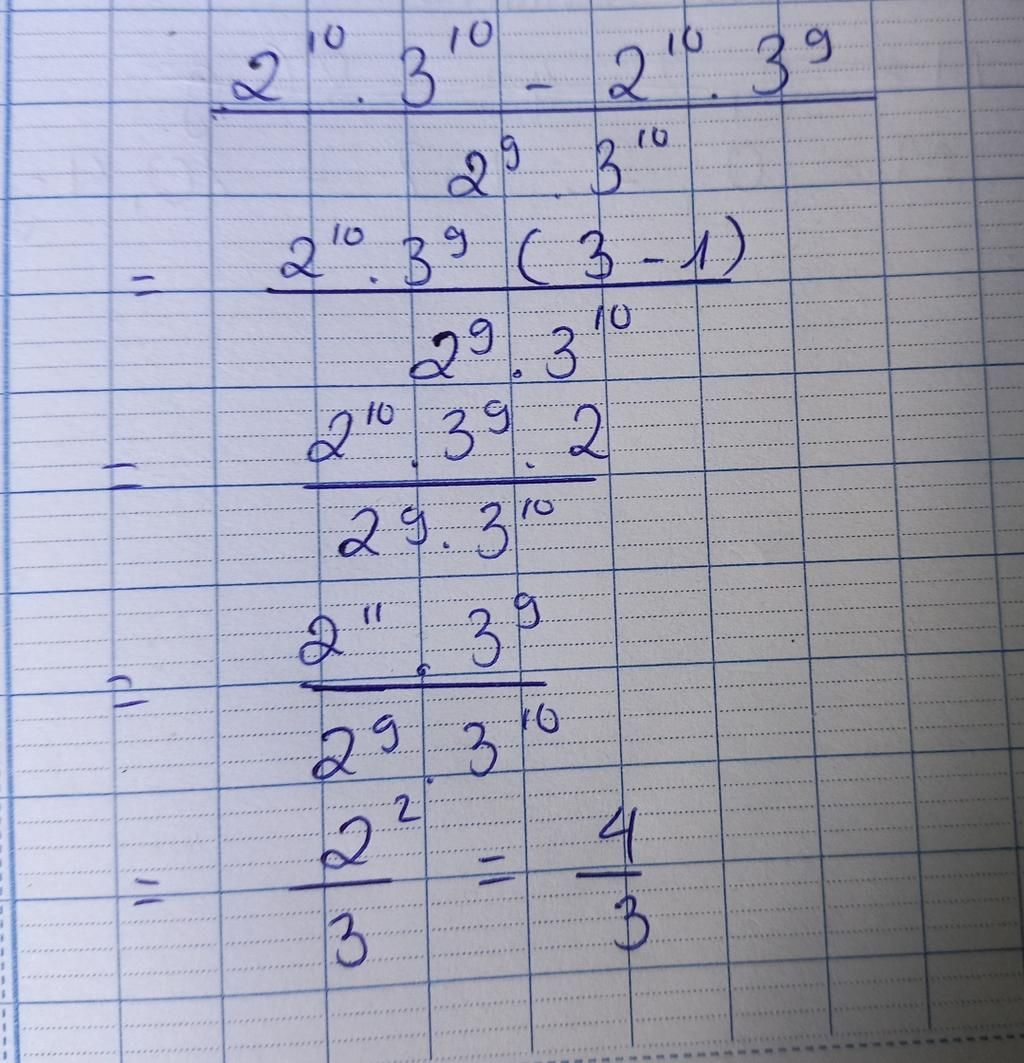 2¹⁰ . 3¹⁰ - 2¹⁰ . 3⁹
2⁹ . 3¹⁰
= 2¹⁰ . 3⁹ ( 3 - 1 )
2⁹ . 3¹⁰
= 2¹⁰ . 3⁹ . 2
2⁹ . 3¹⁰
= 2¹¹ . 3⁹
2⁹ . 3¹⁰
= 2² = 4
3 3